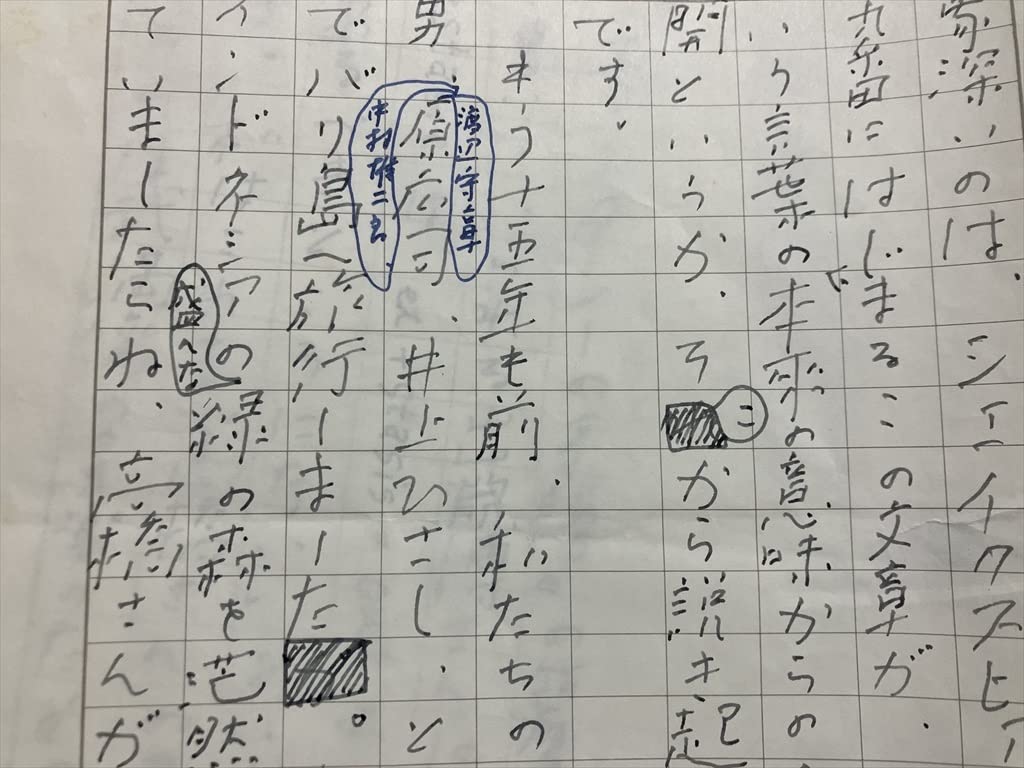 象深いのは、シェイクスピア
にはじまるこの文章が、
いう言葉の本来の意味からの
開というか、そこから説き起
です。
もう十五年も前、私たちの
渡辺守章
男、原広司、井上ひさし、と
中村雄二郎
でバリ島へ旅行しました。
インドネシアの緑の森を茫然
ていましたらね、さんが